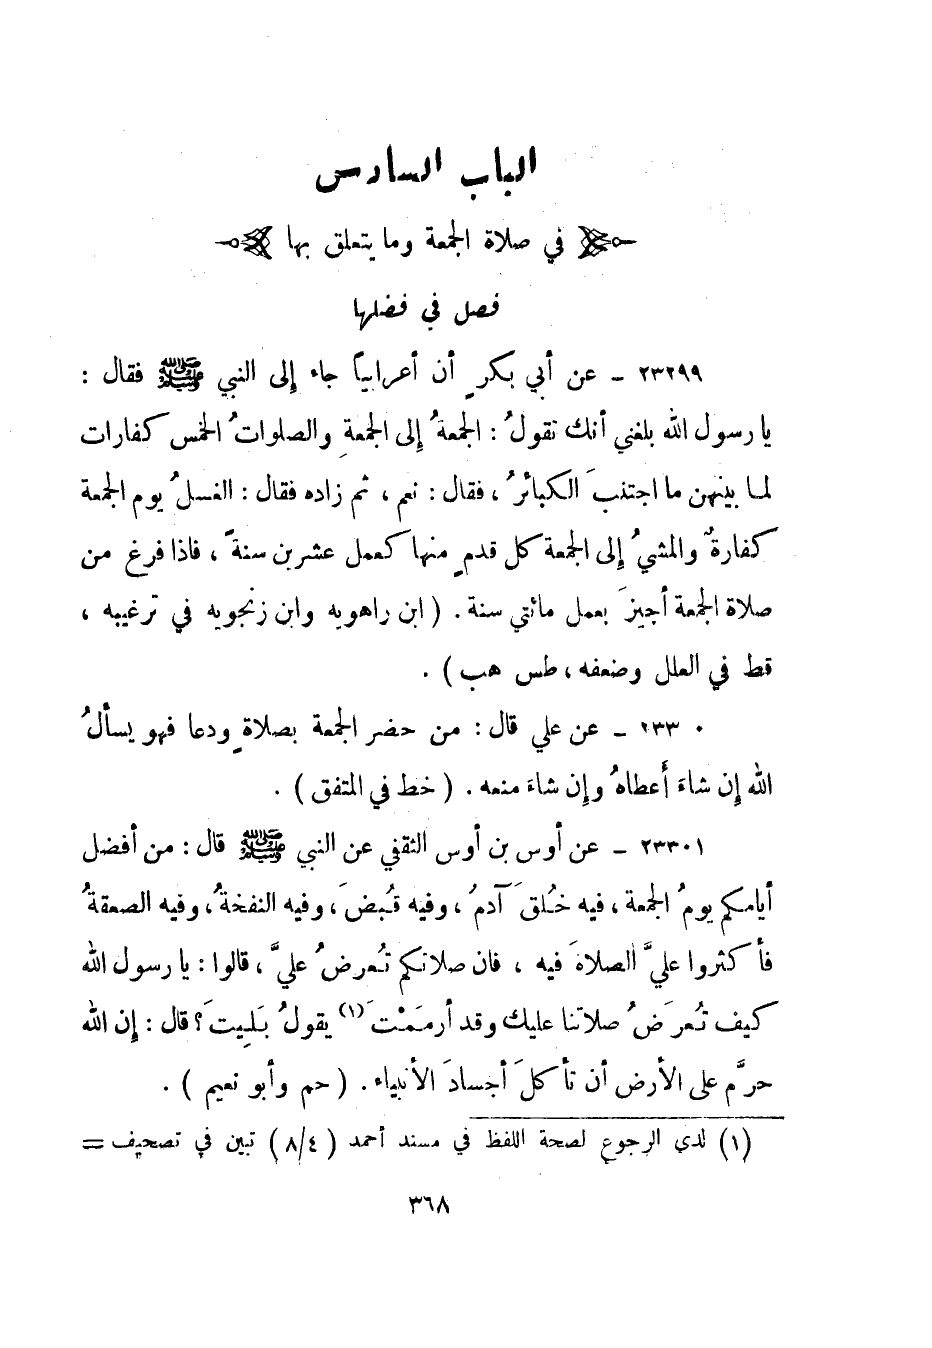 الباب السادس
في صلاة الجمعة وما يتعلق بها
فصل في فضلها
٢٣٢٩٩ - عن أبي بكرٍ أن أعرابياً جاء إلى النبي ﷺ فقال :
يا رسول الله بلغني أنك تقولُ : الجمعةُ إلى الجمعةِ والصلواتُ الخمس كفارات
لما بينهن ما اجتنبَ الكبائرُ ، فقال : نعم ، ثم زاده فقال : الغسلُ يوم الجمعة
كفارةٌ والمشيُ إلى الجمعة كل قدمٍ منها كعمل عشرين سنةً ، فاذا فرغ من
صلاة الجمعة أجيزَ بعمل مائتي سنة . ( ابن راهويه وابن زنجويه في ترغيبه ،
قط في العلل وضعفه ، طس هب ) .
٢٣٣٠٠ - عن علي قال : من حضر الجمعة بصلاةٍ ودعا فهو يسألُ
الله إن شاءَ أعطاهُ وإن شاءَ منعه . ( خط في المتفق ) .
٢٣٣٠١ - عن أوس بن أوس الثقفي عن النبي ﷺ قال : من أفضل
أيامكم يومُ الجمعة ، فيه خُلقَ آدمُ ، وفيه قُبضَ ، وفيه النفخةُ ، وفيه الصعقةُ
فأكثروا عليَّ الصلاةَ فيه ، فان صلاتكم تُعرضُ عليَّ ، قالوا : يا رسول الله
كيف تُعرَضُ صلاتنا عليك وقد أرمَمْتَ(١) يقولُ بَلِيتَ ؟ قال : إن الله
حرَّم على الأرض أن تأكلَ أجسادَ الأنبياء . ( حم وأبو نعيم ) .
(١) لدى الرجوع لصحة اللفظ في مسند أحمد ( ٨/٤ ) تبين في تصحيف =
٣٦٨